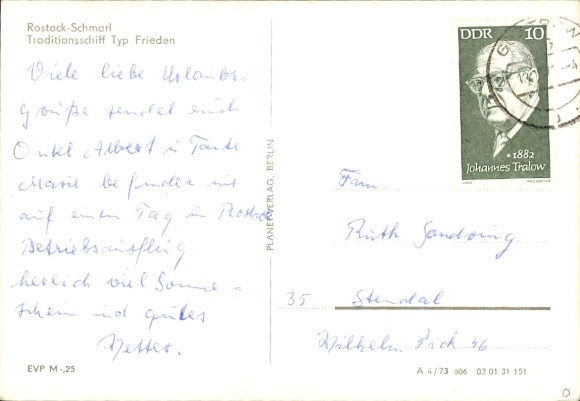 Rostock-Schmarl
Traditionsschiff Typ Frieden
Viele liebe Urlaubs-
grüße sendet euch
Onkel Albert u Tante
Marie befinden uns
auf einen Tag in Rostock
Betriebsausflug
herlich viel Sonne-
schein und gutes
Wetter.
EVP M -,25
PLANET-VERLAG, BERLIN
DDR 10
*1882
Johannes Tralow
Fam.
Ruth
35 Stendal
Wilhelm Pick 46
A 4/73 606 02 01 31 151